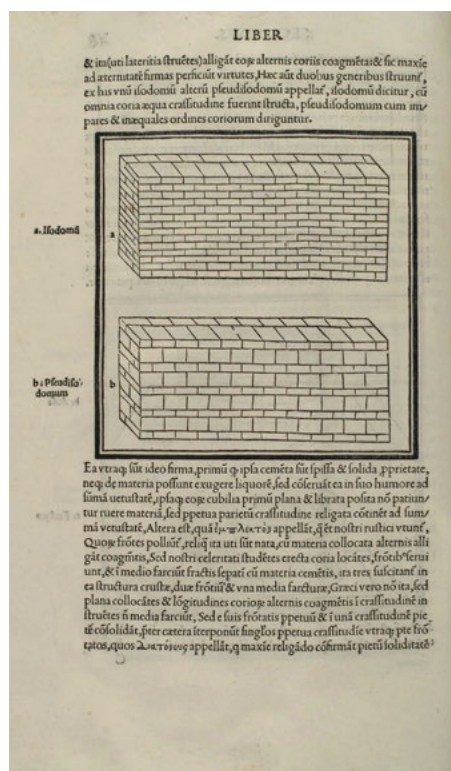 LIBER
& ita(uti lateritia struẽtes)alligãt eoꝝ alternis coriis coagmẽta:& sic maxĩe
ad æternitatẽ firmas perficiũt virtutes, Hæc aũt duobus generibus struunť,
ex his vnũ isodomũ alterũ pseudisodomũ appellať, isodomũ dicitur, cũ
omnia coria æqua crassitudine fuerint structa, pseudisodomum cum im/
pares & inæquales ordines coriorum diriguntur.
a. Isodomũ
a
b: Pseudiso/
domum
b
Ea vtraqꝫ sũt ideo firma, primũ ꝙ ipsa cemẽta sũt spissa & solida ꝓprietate,
neqꝫ de materia possunt exugere liquorẽ, sed cõseruãt ea in suo humore ad
sũmã uetustatẽ, ipsaqꝫ eoꝝ cubilia primũ plana & librata posita nõ patiun/
tur ruere materiã, sed ppetua parietũ crassitudine religata cõtinẽt ad sum/
mã vetustatẽ, Altera est, quã ἐμπλεκτὸν appellãt, q̃ ẽt nostri rustici vtunť,
Quoꝝ frõtes poliunť, reliq̃ ita uti sũt nata, cũ materia collocata alternis alli
gãt coagmẽtis, Sed nostri celeritati studẽtes erecta coria locãtes, frõtibꝰ serui
unt, & ĩ medio farciũt fractis sepatĩ cũ materia cemẽtis, ita tres suscitanť in
ea structura crustæ, duæ frõtiũ & vna media farcturæ, Græci vero nõ ita, sed
plana collocãtes & lõgitudines corioꝝ alternis coagmẽtis ĩ crassitudinẽ in
struẽtes ñ media farciũt, Sed e suis frõtatis ppetuũ & ĩ unã crassitudinẽ pie
tẽ cõsolidãt, ꝓter cætera ĩterponũt singľos ppetua crassitudĩe vtraqꝫ pte frõ
tatos, quos Διατόνους appellãt, q maxĩe religãdo cõfirmãt pietũ soliditatẽ